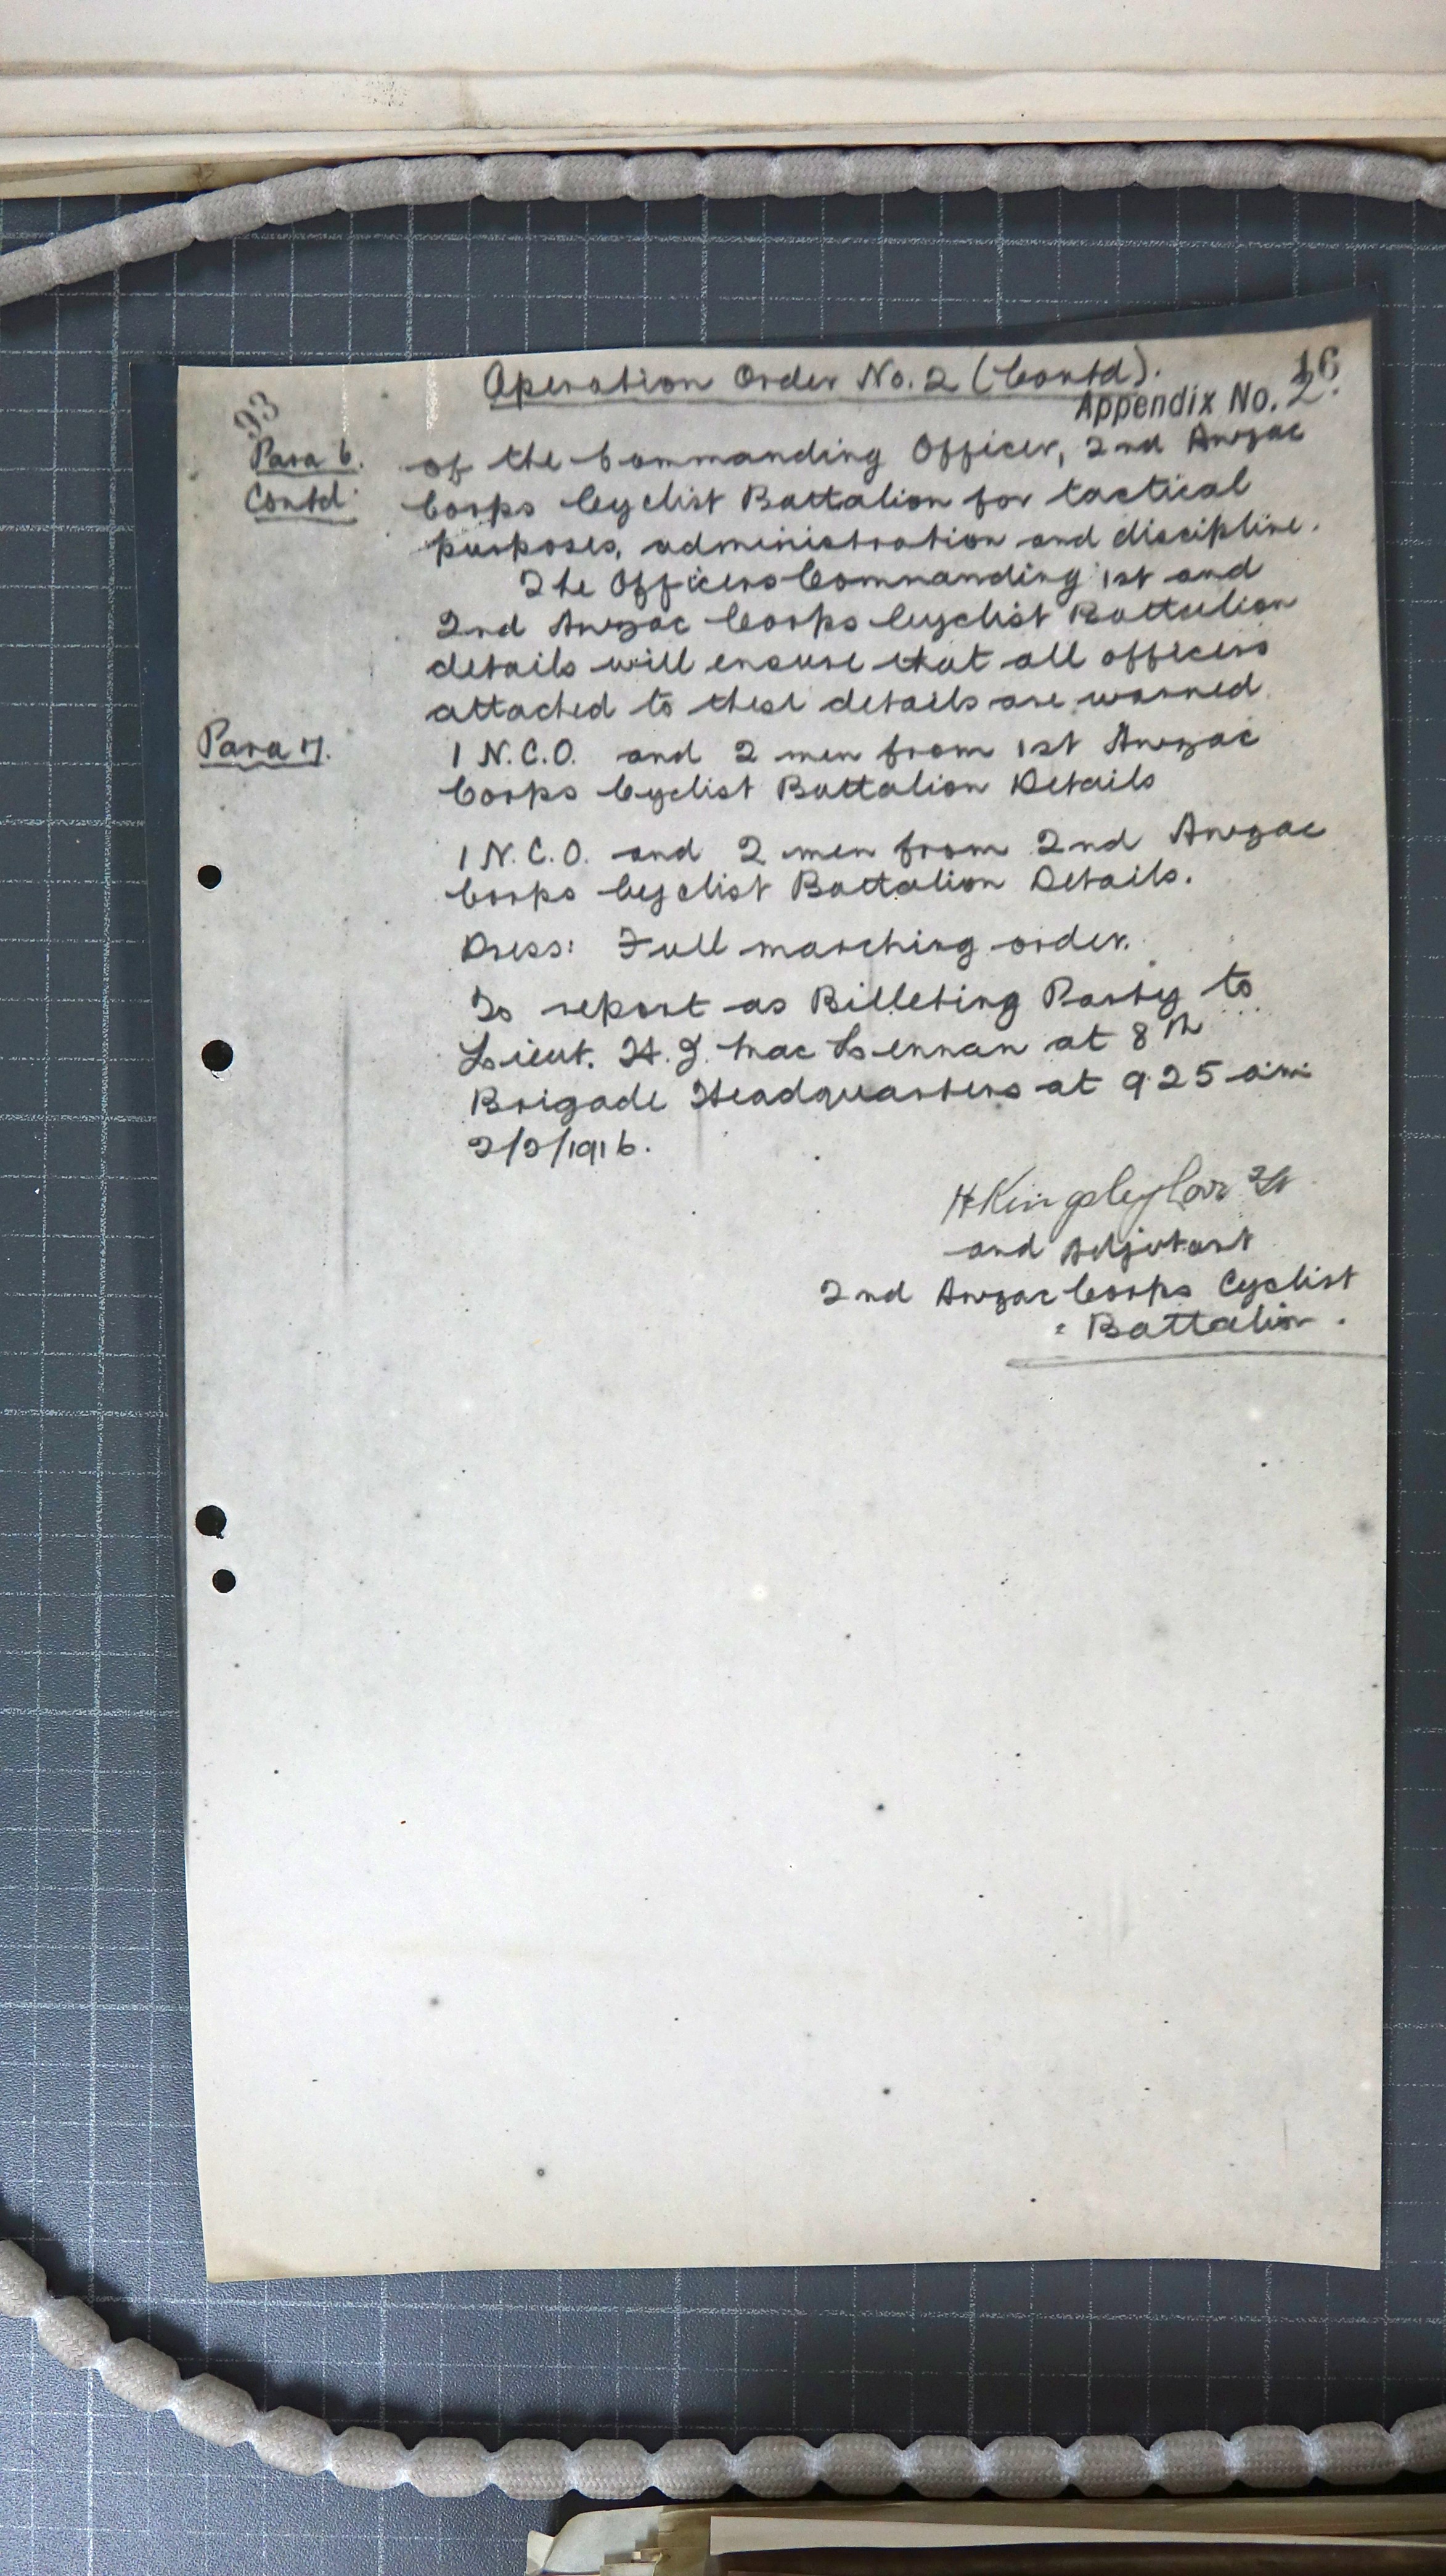 Operation Order No. 2 (Contd).
16
Appendix No. 2.
93
Para 6. of the Commanding Officer, 2nd Anzac
Contd. Corps Cyclist Battalion for tactical
purposes, administration and discipline.
The Officers Commanding 1st and
2nd Anzac Corps Cyclist Battalion
details will ensure that all officers
attached to these details are warned.
Para 7. 1 N.C.O. and 2 men from 1st Anzac
Corps Cyclist Battalion Details
1 N.C.O. and 2 men from 2nd Anzac
Corps Cyclist Battalion Details.
Dress: Full marching order.
To report as Billeting Party to
Lieut. H. J. Mac Lennan at 8th
Brigade Headquarters at 9.25 a.m.
2/2/1916.
H Kingsley
and Adjutant
2nd Anzac Corps Cyclist
Battalion.